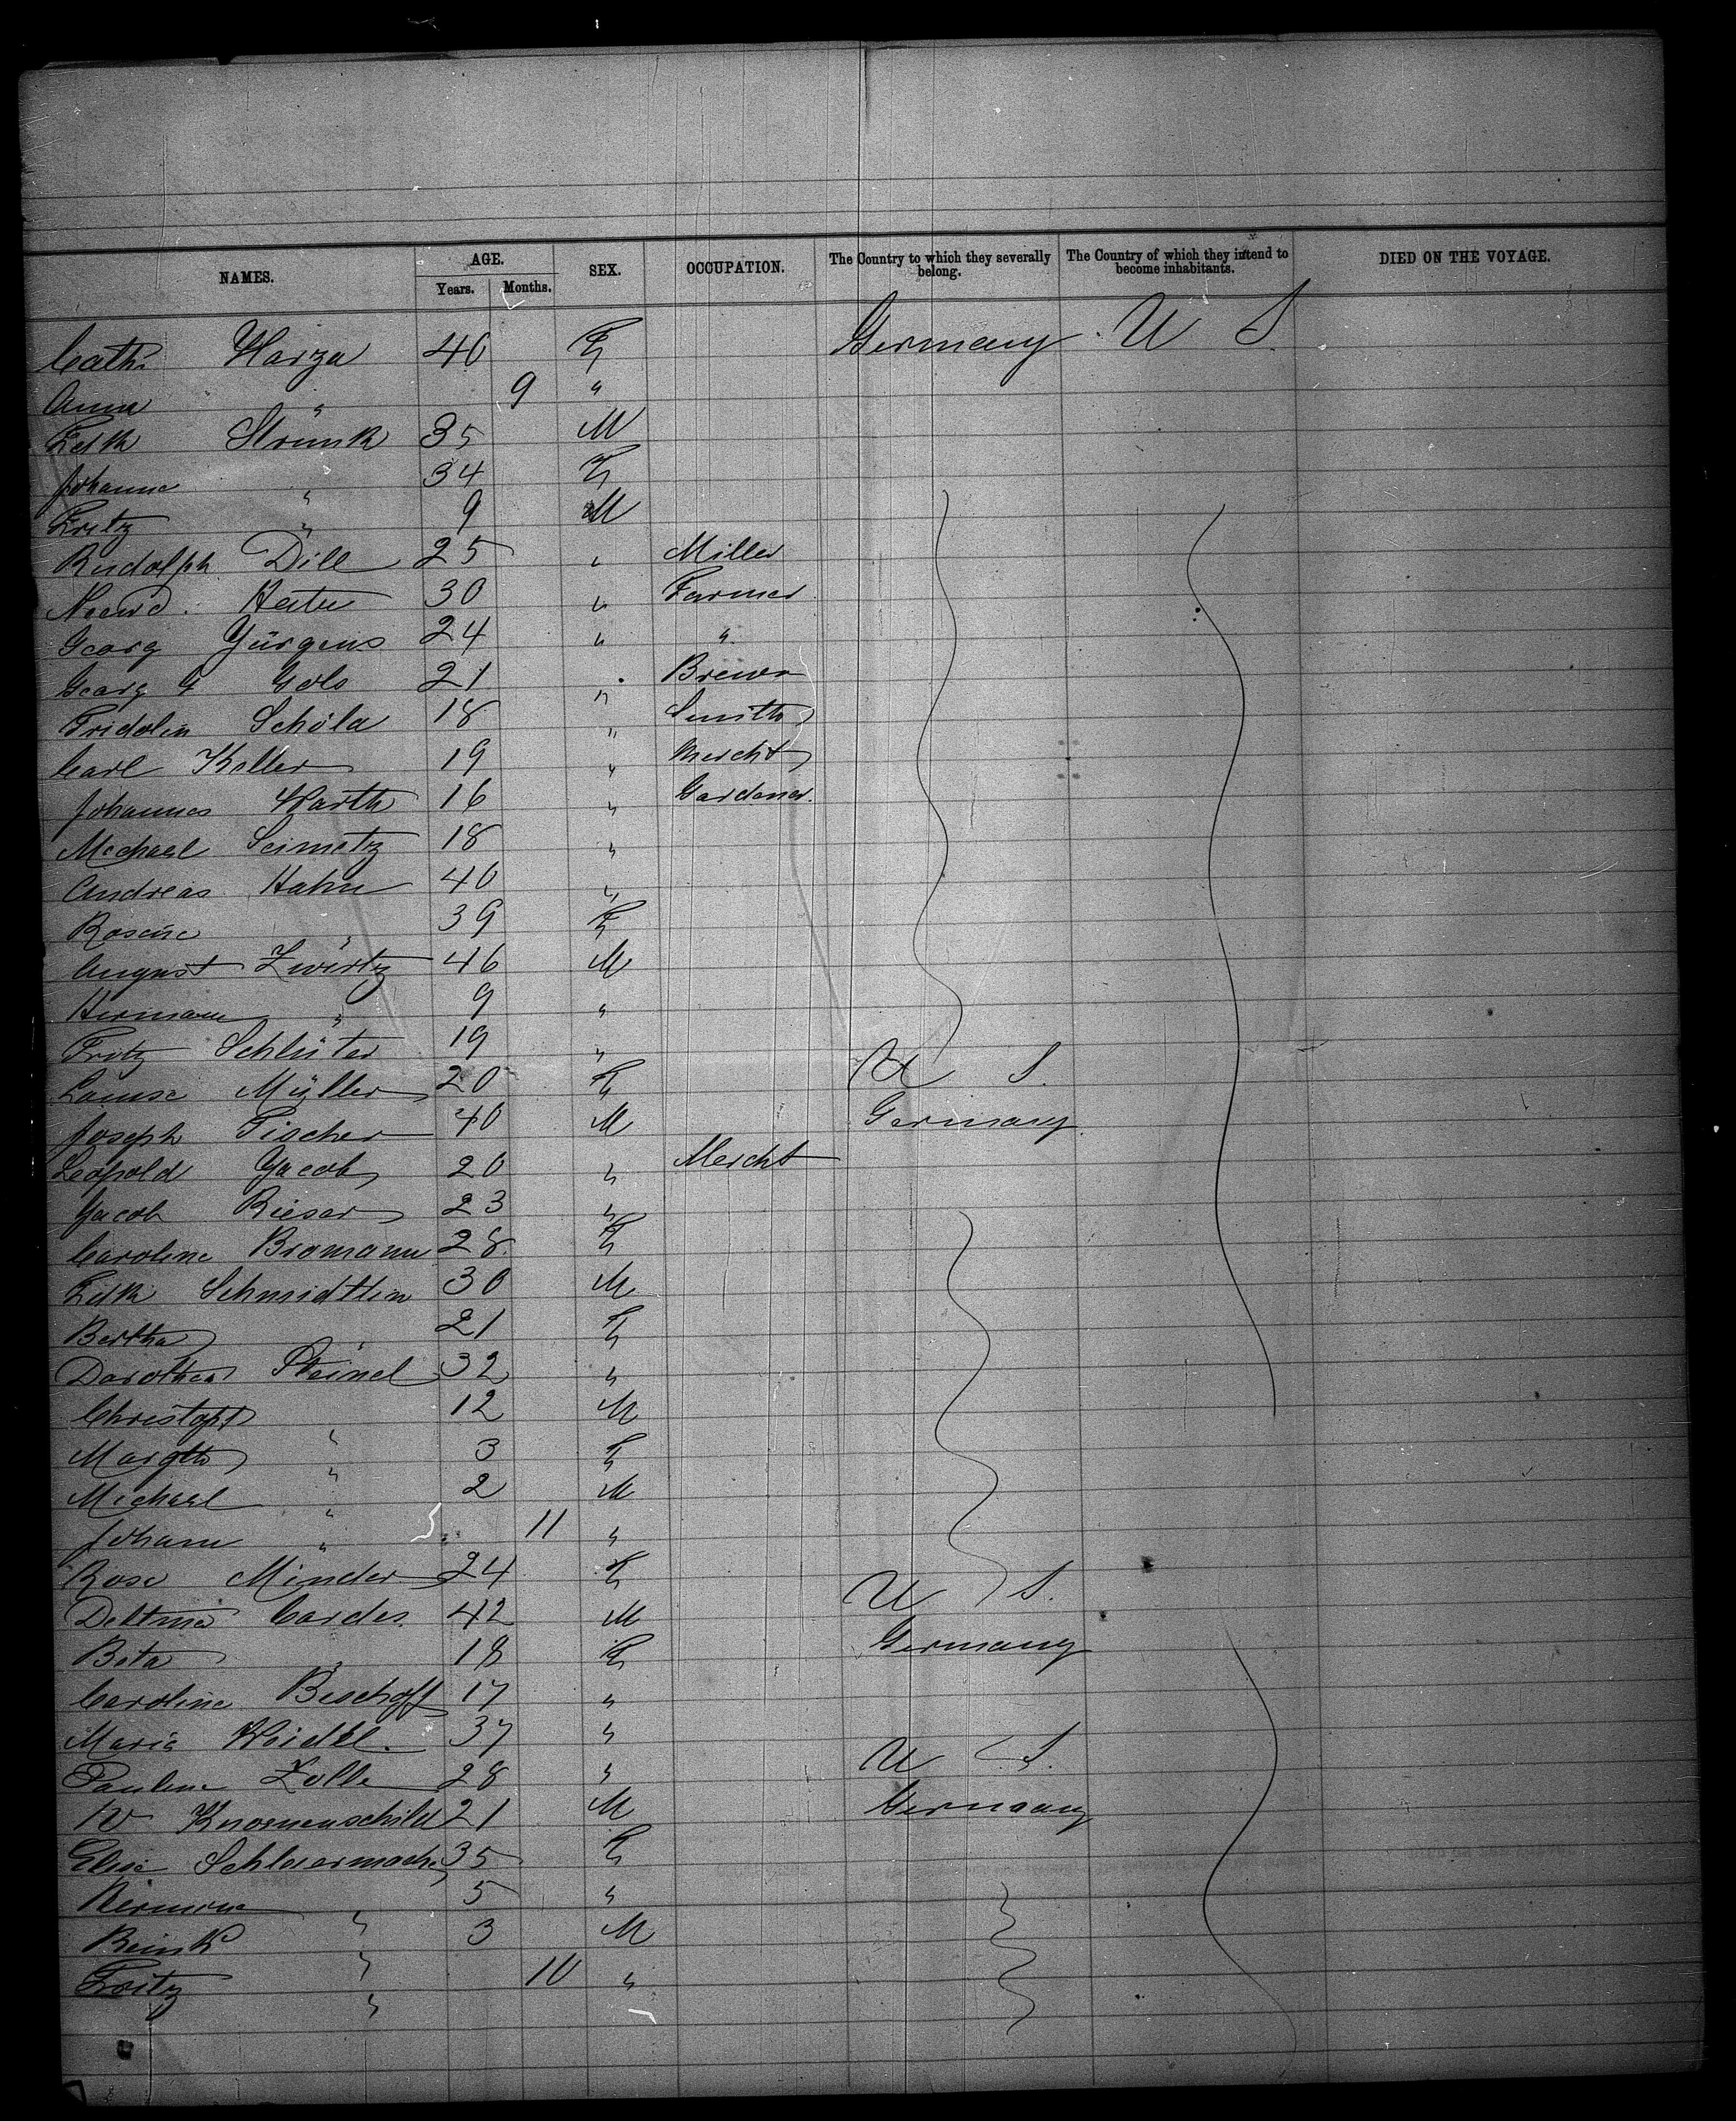 NAMES. AGE. Years. Months. SEX. OCCUPATION. The Country to which they severally belong. The Country of which they intend to become inhabitants. DIED ON THE VOYAGE.
Cath. Harza 40 F Germany U S
Anna " 9 "
Fedk Strunk 35 M
Johanne " 34 F
Fritz " 9 M
Rudolph Dill 25 " Miller
30 " Farmer
Georg Jürgens 24 " "
Georg G Gols 21 " Brewer
Fridolin Schöla 18 " Smith
Carl Keller 19 " Mercht
Johannes Warth 16 " Gardener.
Michael Seimetz 18 "
Andreas Hahn 40 "
Rosine " 39 F
August Zwirtz 46 M
Hermann " 9 "
Fritz Schlüter 19 "
Louise Müller 20 F U S.
Joseph Fischer 40 M Germany
Leopold Jacob 20 " Mercht
Jacob Rieser 23 "
Caroline Bromann 28 F
Fedk Schmidtlin 30 M
Bertha " 21 F
Dorothea Steinel 32 "
Christoph " 12 M
Margth " 3 F
Michael " 2 M
Johann " 11 "
Rosa Minder 24 F U S.
Cordes 42 M Germany
Beta " 18 F
Caroline Bischoff 17 "
Maria Weidel. 37 "
Pauline Zolle 28 " U S.
W Knornenschild 21 M Germany
Elise Schleiermacher 35 F
" 5 "
" 3 M
Fritz " 10 "